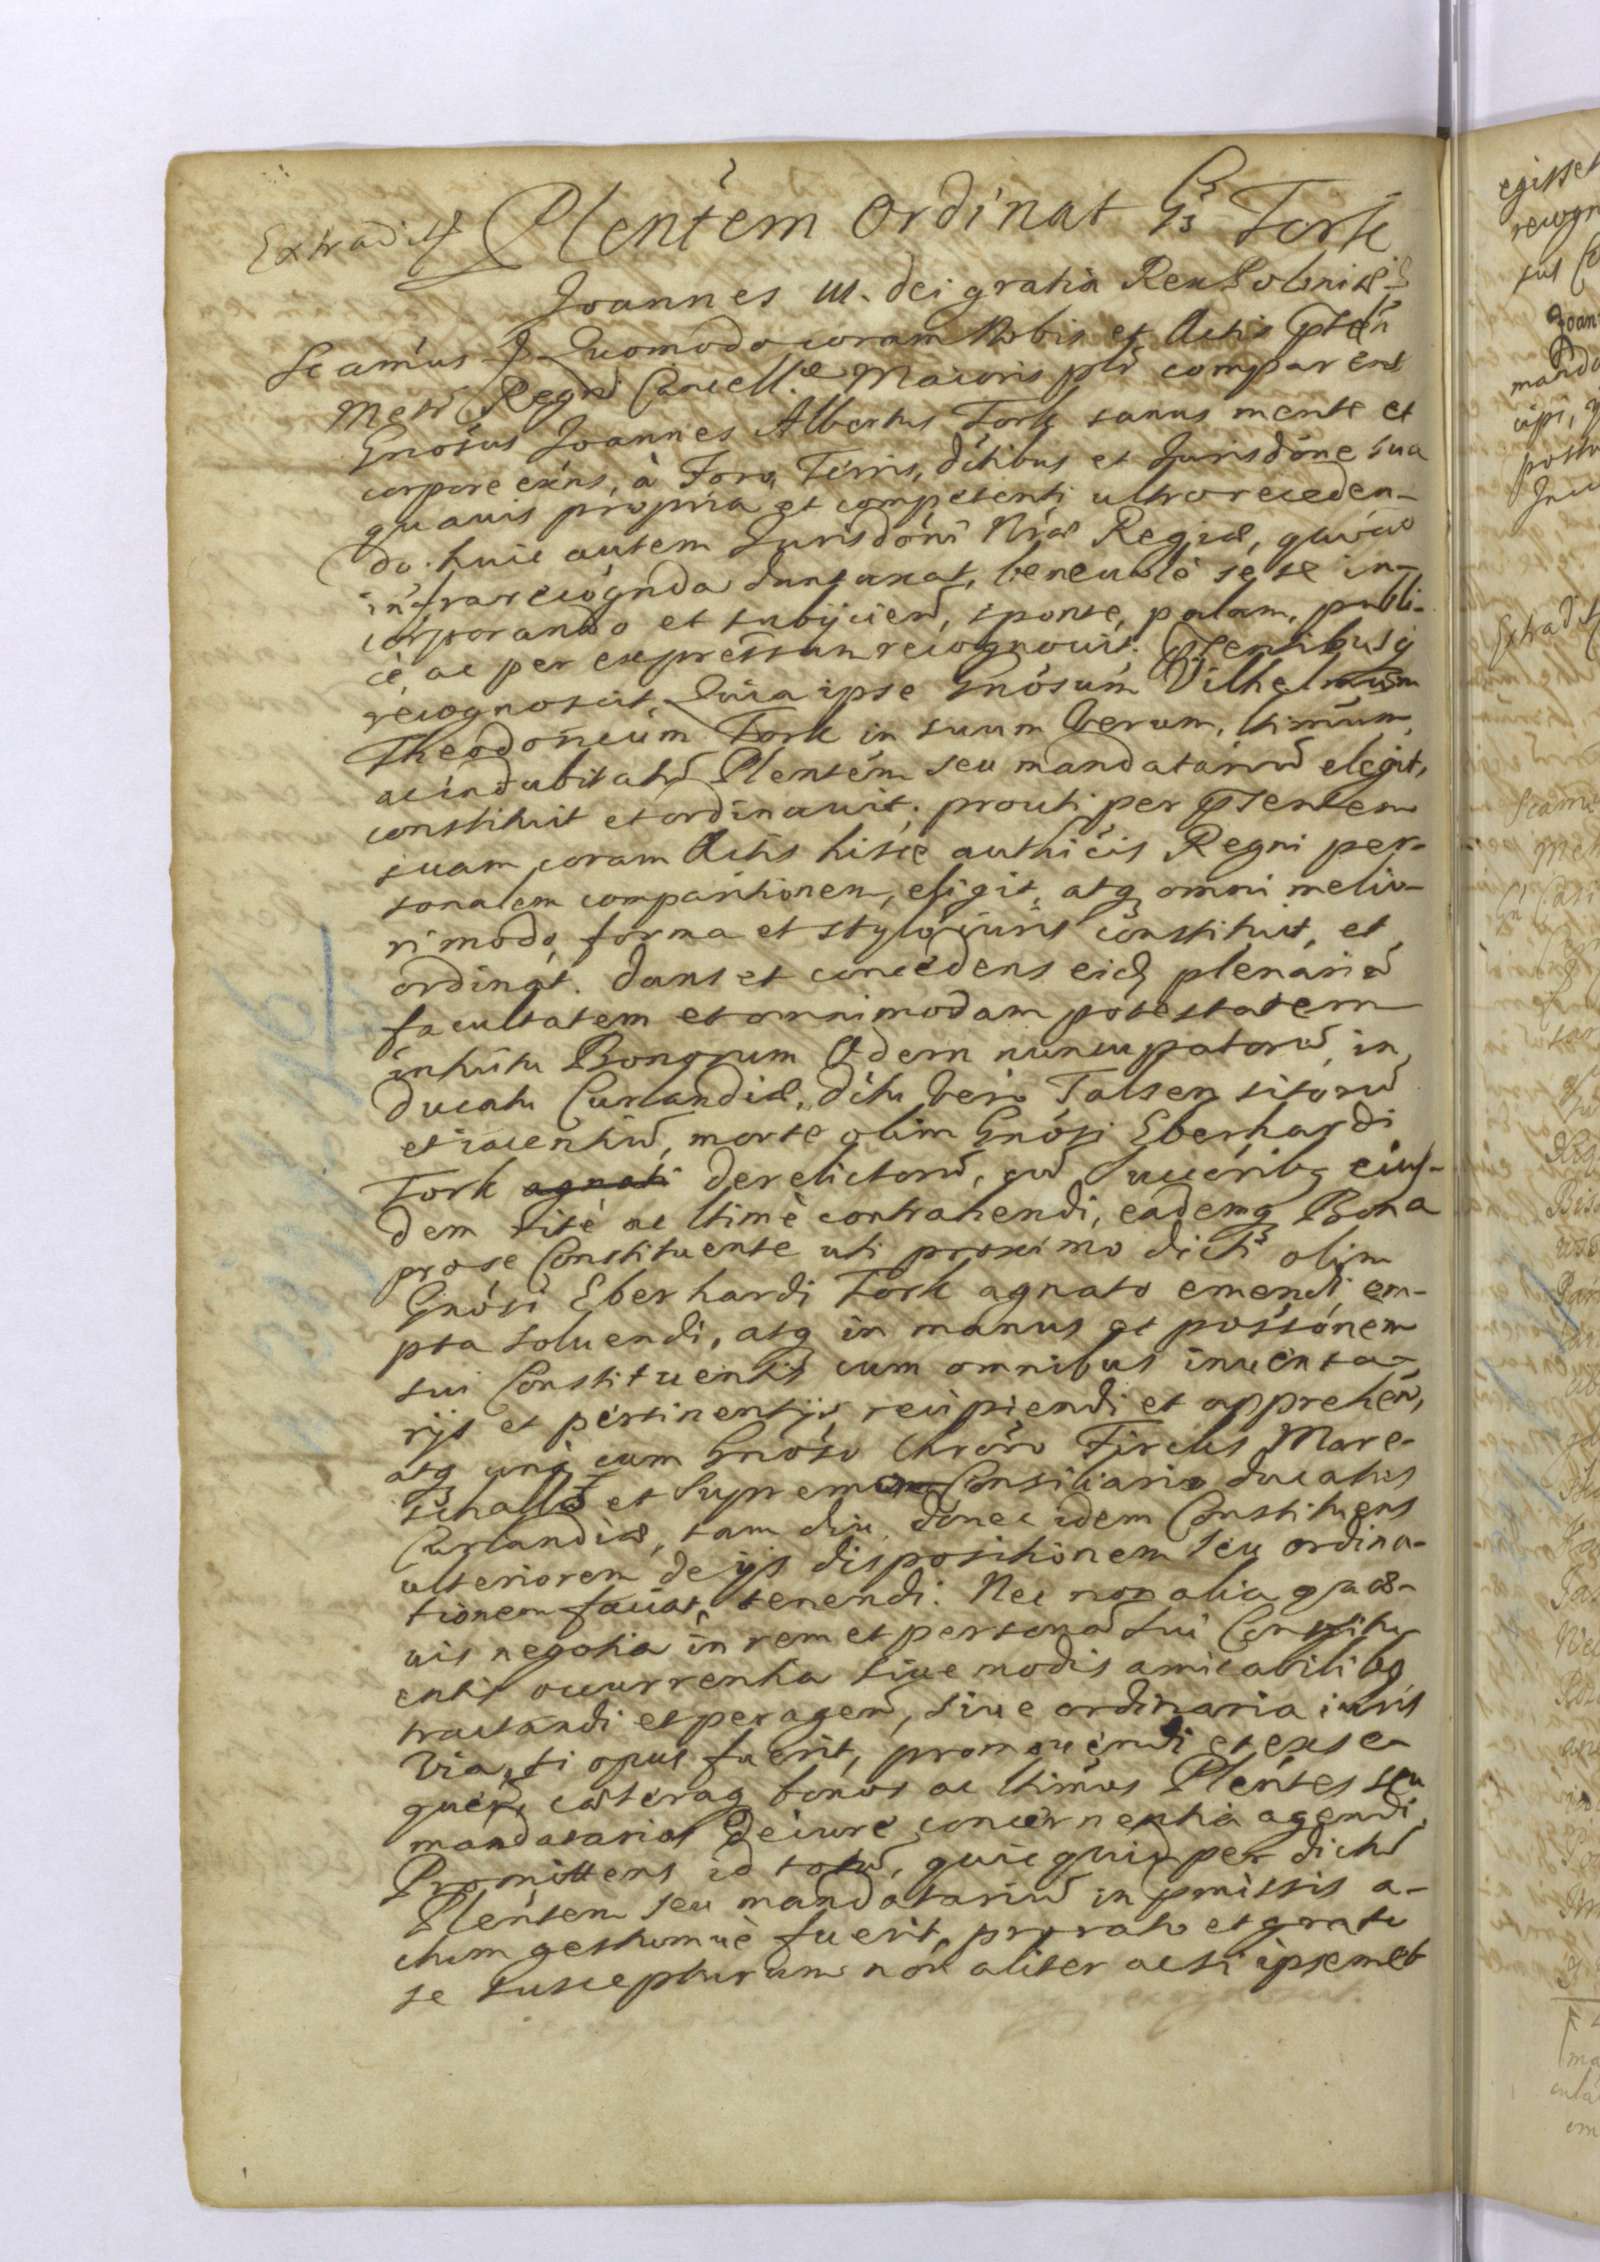 Extradit Plentem Ordinat Gs Tork
Joannes III. Dei gratia Rex Poloniæ
Scamus Quomodo coram Nobis et Actis pnten
Metr Regni Cancell.æ Maioris plr comparens
Gnosus Joannes Albertus Tork sanus mente et
corpore exns, à Foro, Terris, dtibus et Jurisdone sua
quavis propria et competenti ultro receden-
do. huic autem Jurisdoni Nræ Regiæ, quoad
infrarecognda duntaxat, beneuolè sese in-
corporando et subijcien, sponte, palam, publi-
cè, ac per expressum recognouit. Pntentibusq
recognoscit, Quia ipse Gnosum Vilhelmum
Theodoricum Tork in suum verum, ltimum,
ac indubitatu Plentem seu mandatariu elegit,
constituit et ordinauit, prouti per pntentem
suam coram Actis hisce authcis Regni per-
sonalem comparitionem, eligit, atq omni melio-
ri modo, forma et stylo iuris constituit, et
ordinat. Dans et concedens eid plenariã
facultatem et omnimodam potestatem
intuitu Bonorum Odern nuncupatoru, in
Ducatu Curlandiæ, dctu vero Talsen sitoru
et iacentiu, morte olim Gnosi Eberhardi
Tork agnati derelictoru, cu Succribq eius-
dem ritè ac ltimè contrahendi, eademq Bona
pro se Constituente uti proximo dicti olim
Gnosi Eberhardi Tork agnato emendi, em-
pta soluendi, atq in manus et possonem
sui Constituentis cum omnibus inuenta-
rijs et pertinentijs recipiendi et apprehen,
atq unà cum Gnoso Chroro Fircks Mare-
schallo et Supremo Consiliario ducatus
Curlandiæ, tam diu, donec idem Constituens
ulteriorem de ijs dispositionem seu ordina-
tionem faciat, tenendi. Nec non alia quæ-
uis negotia in rem et personã sui Constitu-
entis occurrentia siue modis amicabilibq
tractandi et peragen, siue ordinaria iuris
via, si opus fuerit, promouendi et exse-
quen, cæteraq bonos ac ltimos Plentes seu
mandatarios de iure concernentia agendi,
Promittens id totu, quicquid per dictu
Plentem seu mandatariu in pmissis a-
ctum gestumuè fuerit, pro rato et grato
se suscepturum non aliter ac si ipsemet